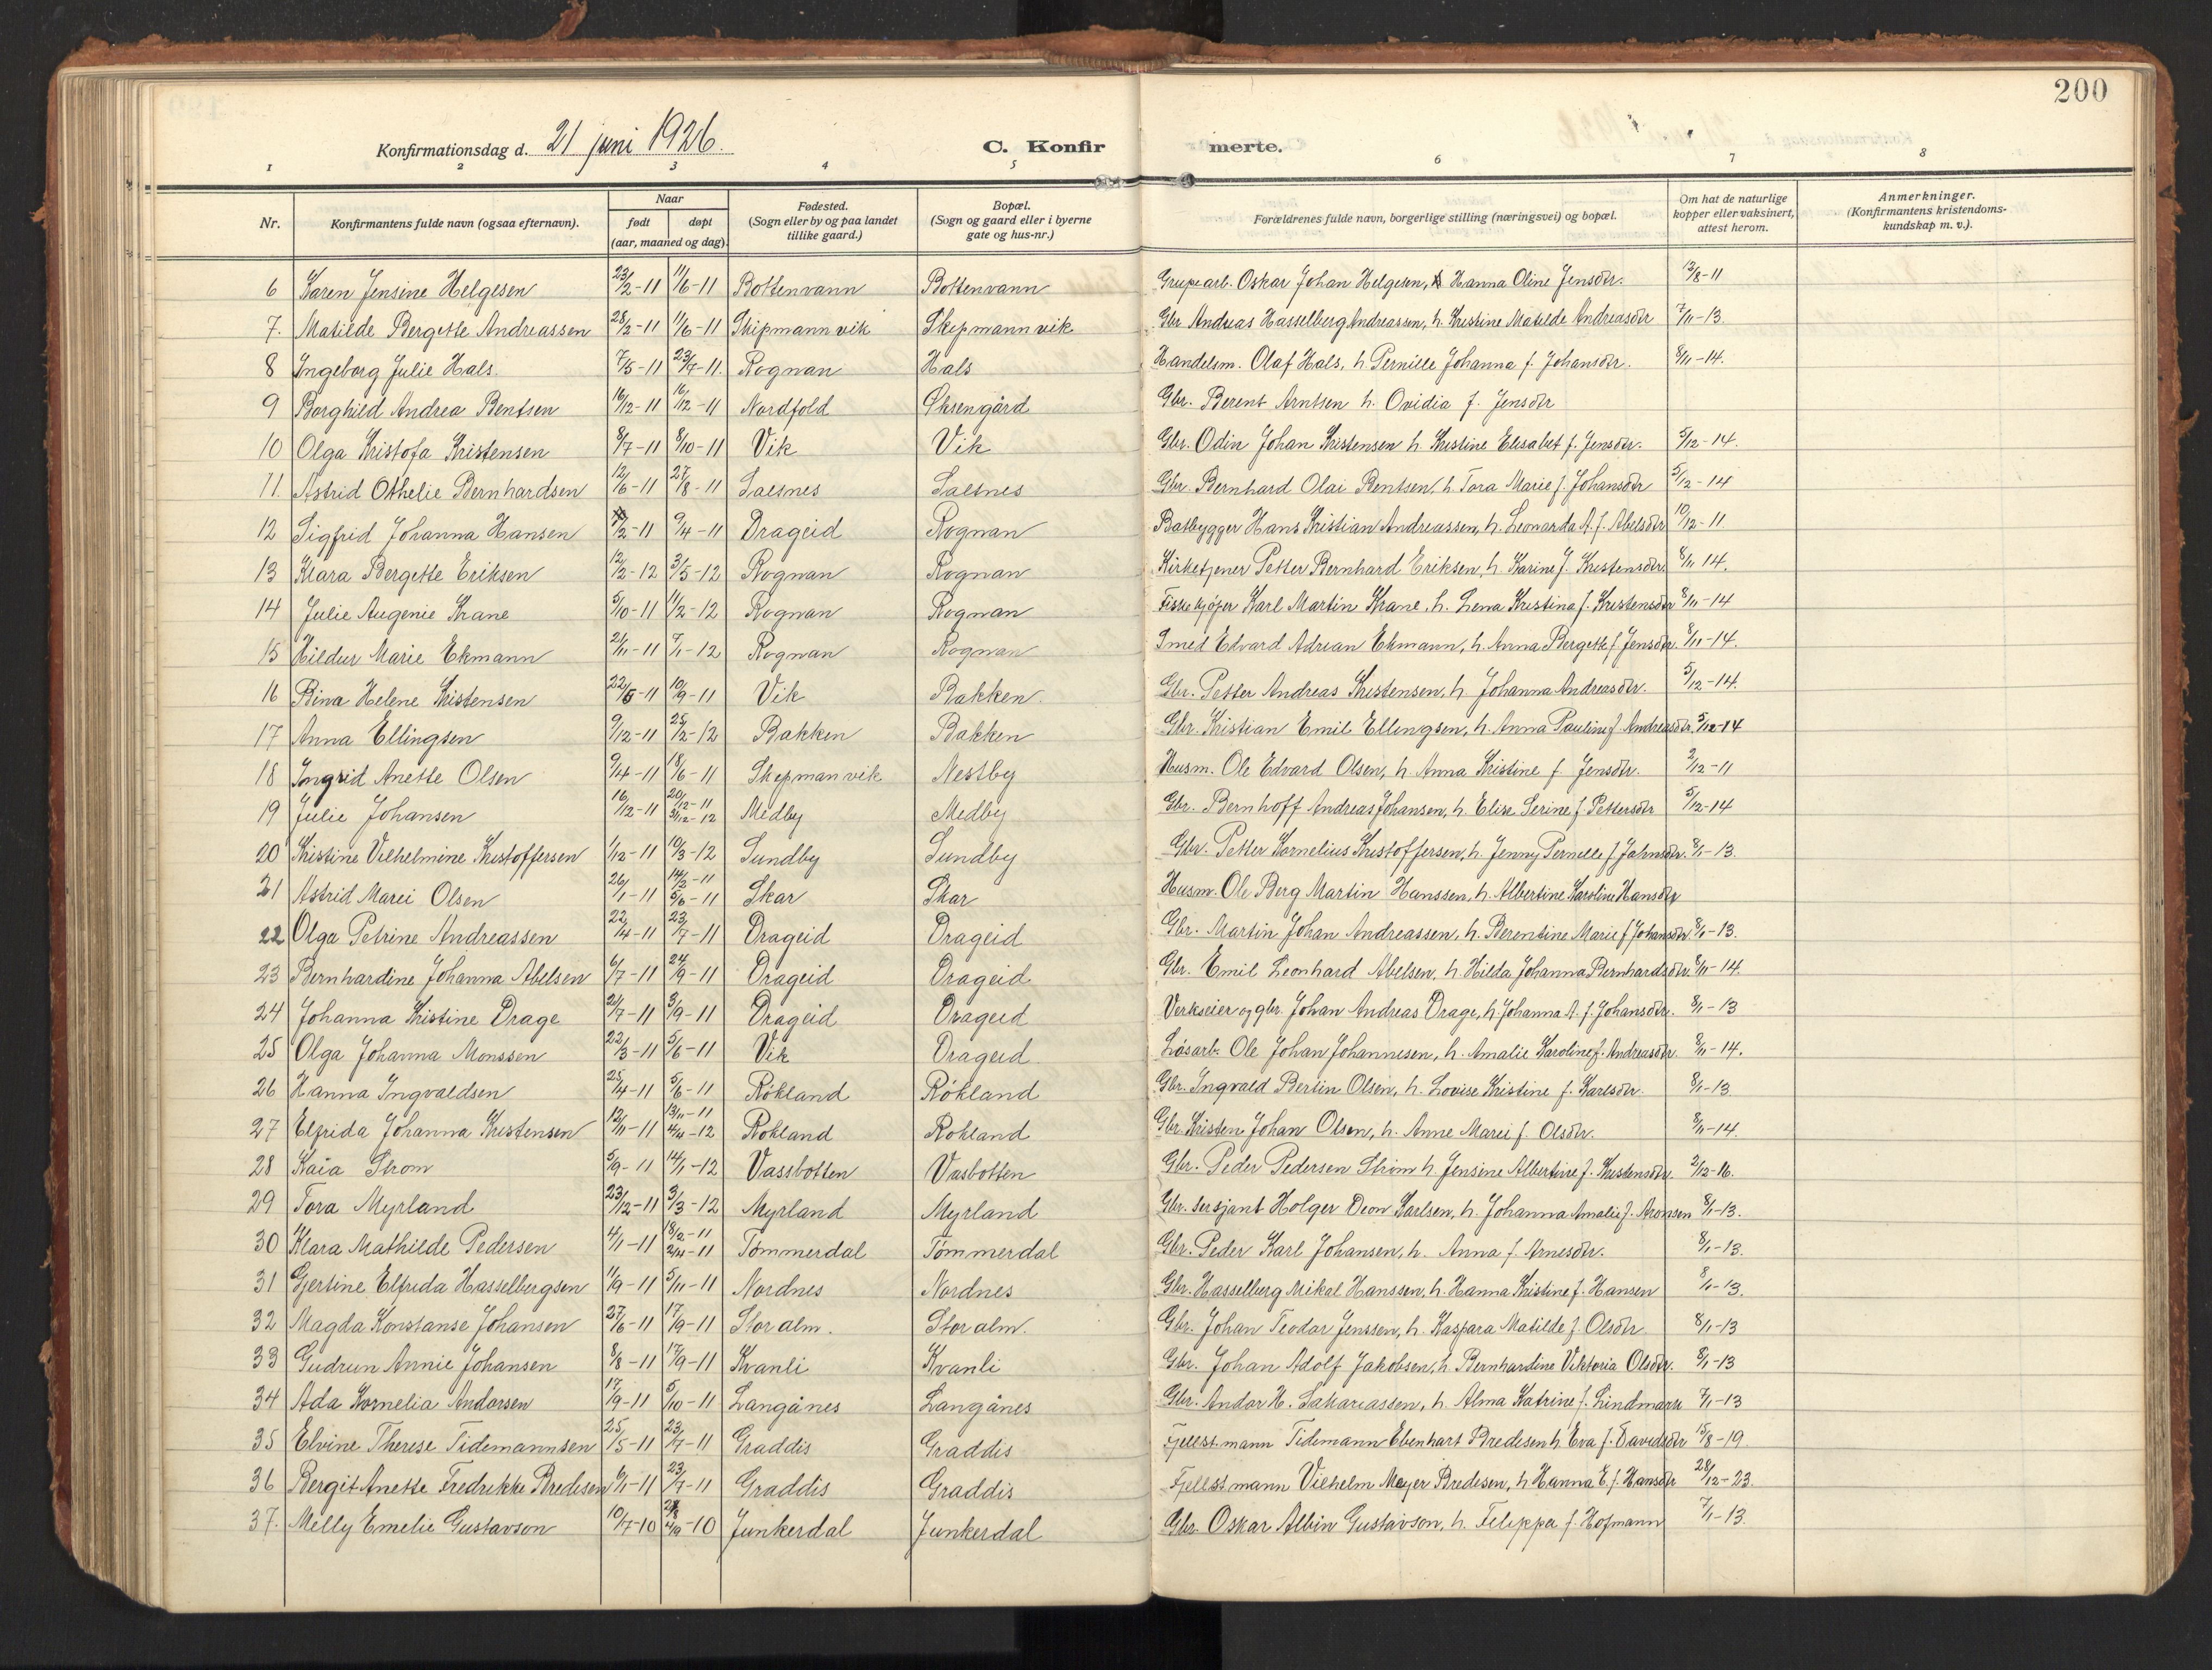 200
Konfirmationsdag d. 21 juni 1926. C. Konfirmerte.
1 2 3 4 5 6 7 8
Nr. Konfirmantens fulde navn (ogsaa efternavn). Naar født døpt (aar, maaned og dag). Fødested. (Sogn eller by og paa landet tillike gaard.) Bopæl. (Sogn og gaard eller i byerne gate og hus-nr.) Forældrenes fulde navn, borgerlige stilling (næringsvei) og bopæl. Om hat de naturlige kopper eller vaksinert, attest herom. Anmerkninger. (Konfirmantens kristendomskundskap m. v.).
6 Karen Jensine Helgesen 23/2-11 11/6-11 Bottenvann Bottenvann Grupearb. Oskar Johan Helgesen, h Hanna Oline Jensdtr. 13/8-11
7. Matilde Bergette Andreassen 28/2-11 11/6-11 Skipmannvik Skepmannvik Gbr Andreas Hasselberg Andreassen, h. Kristine Matilde Andreasdtr 7/11-13.
8 Ingeborg Julie Hals. 7/5-11 23/7-11. Rognan Hals Handelsm. Olaf Hals, h Pernille Johanna f. Johansdtr. 8/11-14.
9 Borghild Andrea Bentsen 16/12-11 16/12-11 Nordfold Øksengård Gbr. Berent Arntsen h. Ovidia f. Jensdtr
10 Olga Kristofa Kristensen 8/7-11 8/10-11 Vik Vik Gbr. Odin Johan Kristensen h. Kristine Elesabet f. Jensdtr. 5/12-14.
11. Astrid Othelie Bernhardsen 12/6-11 27/8-11 Saesnes Saltnes Gbr. Bernhard Olai Bentsen, h. Tora Marie f. Johansdtr 5/12-14
12 Sigfrid Johanna Hansen 7/2-11 9/4-11 Drageid Rognan Batbygger Hans Kristian Andreassen, h. Leonarda A. f. Abelsdtr 10/12-11.
13 Klara Bergette Eriksen 12/2-12 3/5-12 Rognan Rognan Kirketjener Petter Bernhard Eriksen, h. Karine f. Kristensdtr. 8/11 14.
14 Julie Augenie Krane 5/10-11 11/2-12 Rognan Rognan Fiskekjøper Karl Martin Krane, h. Lena Kristina f. Kristensdtr 8/11-14
15 Hildur Marie Ekmann 21/11-11 7/1-12 Rognan Rognan Smed Edvard Adrian Ekmann, h. Anna Bergette f. Jensdtr. 8/11-14.
16 Bina Helene Kristensen 22/5-11 10/9-11 Vik Bakken. Gbr. Petter Andreas Kristensen, h. Johanna Andreasdtr. 5/12-14.
17 Anna Ellingsen 9/12-11 25/2-12 Bakken Bakken Gbr. Kristian Emil Ellingsen, h. Anna Pauline f. Andreasdtr. 5/12-14
18 Ingrid Anette Olsen 9/4-11 18/6-11 Skepmanvik Nestby Husm. Ole Edvard Olsen, h Anna Kristine f Jensdtr. 2/12-11
19 Julie Johansen 16/12-11 20/12-11 3/12-12 Medby Medby Gbr. Bernhoff Andreas Johansen, h Elise Serine f Pettersdtr 5/12-14
20 Kristine Vilhelmine Kristoffersen 1/12-11 10/3-12 Sundby Sundby Gbr. Petter Kornelius Kristoffersen, h. Jenny Pernelle f Johnsdtr. 8/1-13.
21 Astrid Marei Olsen 26/1-11 14/2-11 5/6-11 Skar Skar Husm. Ole Berg Martin Hanssen, h. Albertine Karoline Hansdtr
22 Olga Petrine Andreassen 22/4-11 23/7-11 Drageid Drageid Gbr. Martin Johan Andreassen, h. Berentine Marie f Johansdtr. 8/1-13.
23 Bernhardine Johanna Abelsen 6/7-11 24/9-11 Drageid Drageid Gbr. Emil Leonhard Abelsen, h. Hilda Johanna Bernhardsdtr. 8/11-14.
24 Johanna Kristine Drage 21/7-11 3/9-11 Drageid Drageid Verkseier og gbr. Johan Andreas Drage, h. Johanna A. f. Johansdtr. 8/1-13
25 Olga Johanna Monssen 22/3-11 5/6-11 Vik Drageid Løsarb. Ole Johan Johannesen, h. Amalie Karoline f. Andreasdtr. 8/11-14.
26 Hanna Ingvaldsen 25/4-11 5/6-11 Røkland Røkland Gbr. Ingvald Bertin Olsen, h. Lovise Kristine f. Karlsdtr. 8/1-13.
27 Elfrida Johanna Kristensen 12/11-11 13/11-11 4/4-12 Rokland Rokland Gbr. Kristen Johan Olsen, h. Anne Marei f. Olsdtr. 8/11-14.
28 Kaia Strøm 5/9-11 14/1-12 Vassbotten Vasbotten Gbr. Peder Pedersen Strøm h. Jensine Albertine f. Kristensdtr. 2/12-16.
29 Tora Myrland 23/12-11 3/3-12 Myrland Myrland Gbr. sersjant Holger Deon Karlsen, h. Johanna Amalie f. Aronsen 8/1-13.
30 Klara Mathilde Pedersen 4/1-11 18/2-11 2/4-11 Tømmerdal Tømmerdal Gbr. Peder Karl Johansen, h. Anna f. Arnesdtr. 8/1-13.
31 Gjertine Elfrida Hasselbergsen 11/9-11 5/11-11 Nordnes Nordnes Gbr. Hasselberg Mikal Hanssen, h. Hanna Kristine f. Hansen 8/1-13.
32 Magda Konstanse Johansen 27/6-11 17/9-11 Storalm. Storalm. Gbr. Johan Teodor Jenssen, h. Kaspara Matilde f. Olsdtr 8/1-13
33 Gudrun Annie Johansen 8/8-11 17/9-11 Kvanli Kvanli Gbr. Johan Adolf Jakobsen, h. Bernhardine Viktoria Olsdtr. 8/1-13
34 Ada Kornelia Andorsen 17/9-11 5/10-11 Langånes Langånes Gbr. Andor H. Sakariassen, h. Alma Katrine f. Lindmark 7/1-13
35 Elvine Therese Tidemannsen 25/5-11 23/7-11 Graddis Graddis Fjellst.mann Tidemann Ebenhart Bredesen h. Eva f. Davidsdtr 15/8-19.
36 Bergit Anette Fredrikke Bredesen 6/1-11 23/7-11 Graddis Graddis Fjellstmann Vilhelm Mejer Bredesen, h Hanna E. f. Hansdtr 28/12-23.
37. Melly Emelie Gustavson 10/7-10 4/9-10 Junkerdal Junkerdal Gbr. Oskar Albin Gustavson, h. Filippa f. Hofmann 7/1-13.